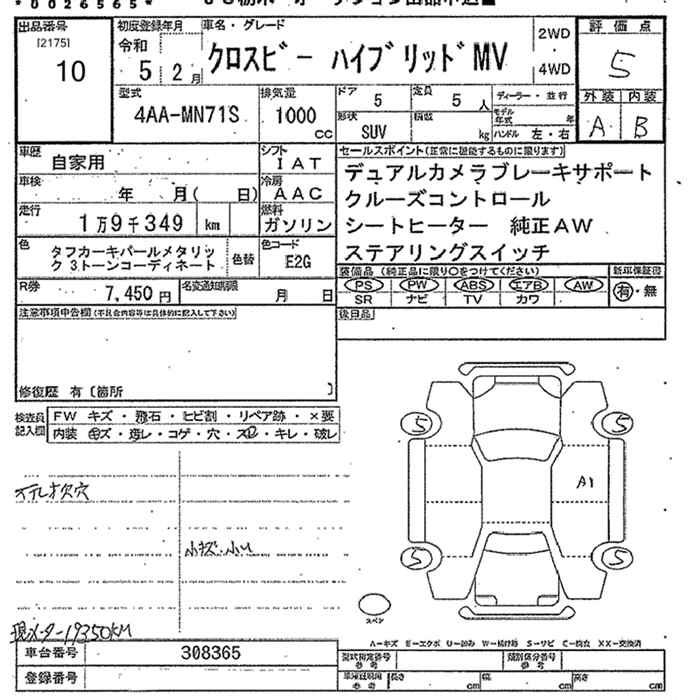 *0026565*
出品番号
[2175]
10
初度登録年月
令和
5 2月
車名・グレード
クロスビー ハイブリッドMV
2WD
・
4WD
評価点
5
外装 内装
A B
型式
4AA-MN71S
排気量
1000
cc
ドア
5
定員
5 人
形状
SUV
積数
kg
ディーラー・並行
モデル年式 年
ハンドル 左・右
車歴
自家用
シフト
IAT
車検
年 月( 日)
冷房
AAC
走行
1万9千349 km
燃料
ガソリン
色
タフカーキパールメタリッ
ク 3トーンコーディネート
色替
色コード
E2G
R券
7,450円
名変通知期限
月 日
セールスポイント(正常に機能するものに限ります)
デュアルカメラブレーキサポート
クルーズコントロール
シートヒーター 純正AW
ステアリングスイッチ
装備品 (純正品に限り○をつけてください)
新車保証書
PS PW ABS エアB AW
SR ナビ TV カワ
有・無
後日品
注意事項申告欄(不具合内容等は具体的に記入して下さい)
修復歴 有〔箇所 〕
検査員
記入欄
FW キズ・飛石・ヒビ割・リペア跡・×要
内装 キズ・汚レ・コゲ・穴・スレ・キレ・破レ
小キズ・小U
現メーター19350KM
5 5
A1
5 5
スペア
A−キズ E−エクボ U−凹み W−補修跡 S−サビ C−腐食 XX−交換済
車台番号 308365
登録番号
型式指定番号
参考
類別区分番号
参考
車庫証明用
参考
長さ cm
幅 cm
高さ cm